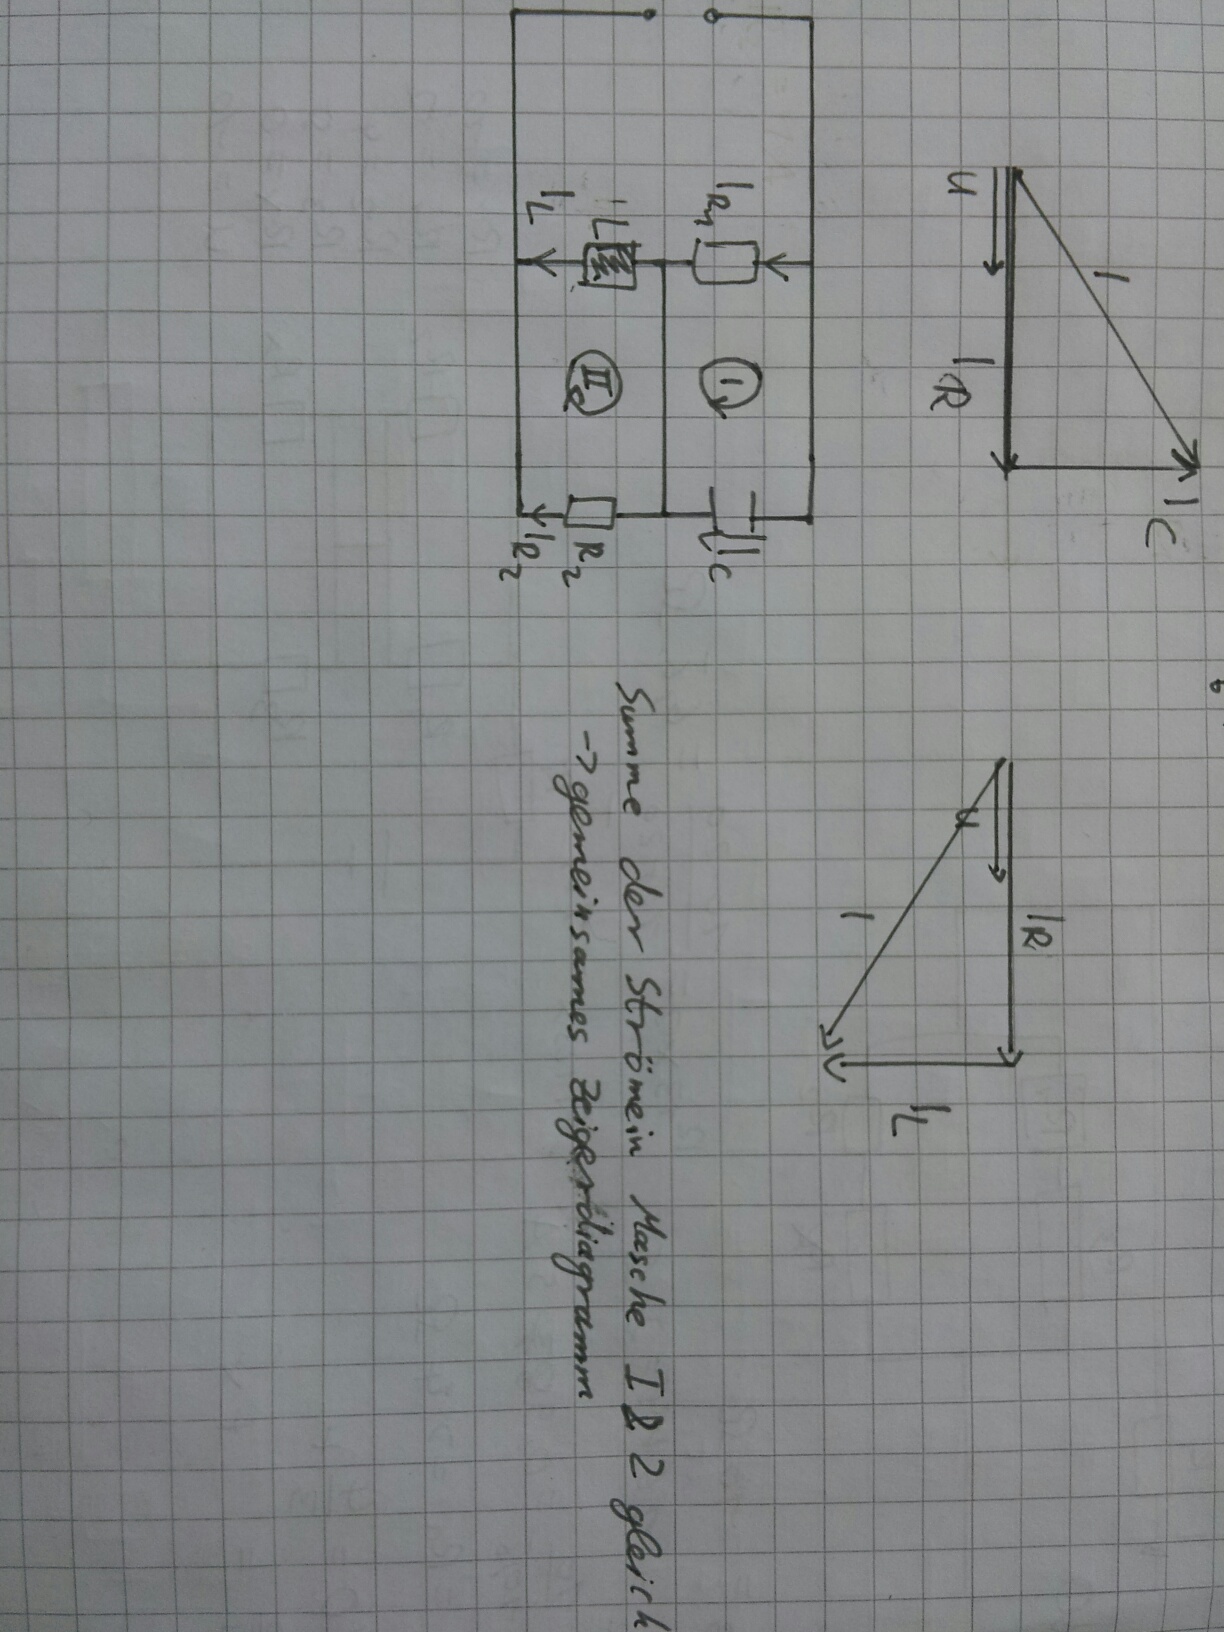 I
I_C
U
I_R
I_R
U
I
I_L
I_R1
I
I_C
L
II
R_2
I_L
I_R2
Summe der Ströme in Masche I & 2 gleich
-> gemeinsames Zeigerdiagramm